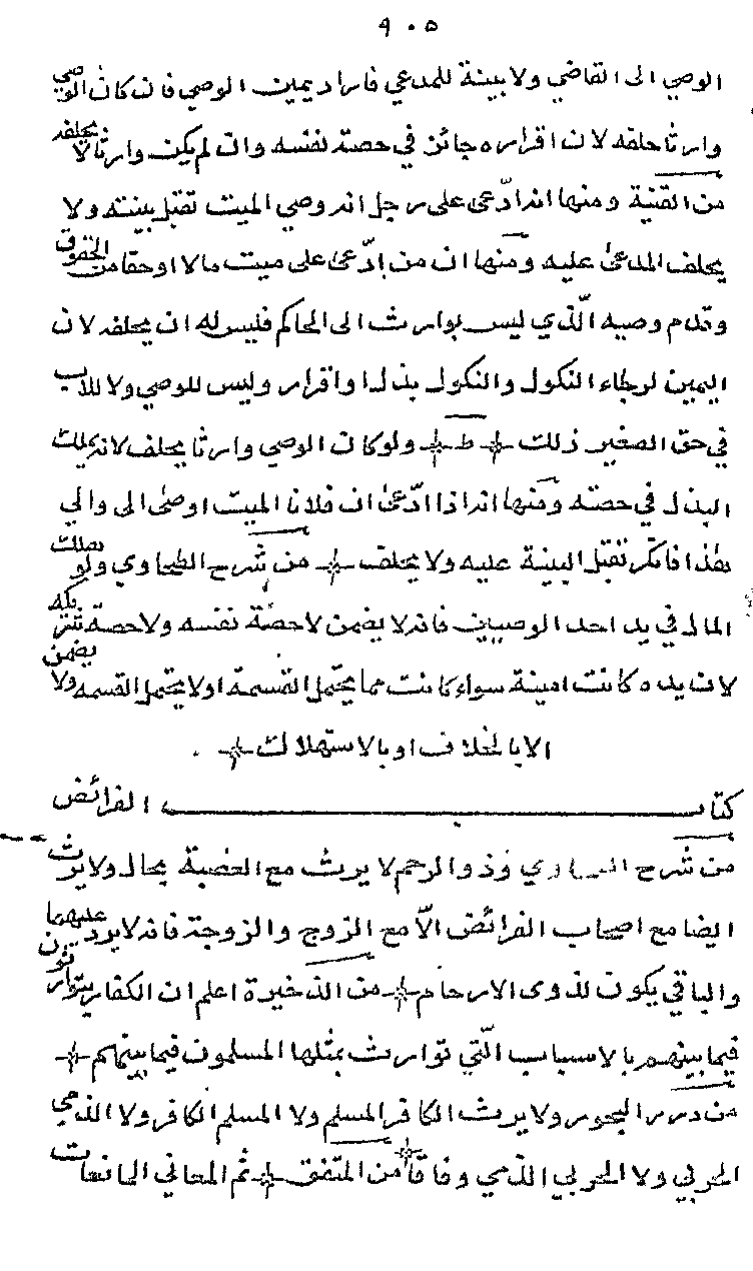 ٩٠٥
الوصي الى القاضي ولا بينة للمدعي فاراد يمين الوصي فان كان الوصي
وارثا حلفه لان اقراره جائز في حصة نفسه وان لم يكن وارثا لا يحلفه
من القنية ومنها انه ادّعى على رجل انه وصي الميت تقبل بينته ولا
يحلف المدعى عليه ومنها ان من ادّعى على ميت مالا او حقا من الحقوق
وقدم وصيه الّذي ليس بوارث الى الحاكم فليس له ان يحلفه لان
اليمين لرجاء النكول والنكول بذل او اقرار وليس للوصي ولا للاب
في حق الصغير ذلك ط ولو كان الوصي وارثا يحلف لانه يملك
البذل في حصته ومنها انه اذا ادّعى ان فلانا الميت اوصى الى والي
هذا فانكر تقبل البينة عليه ولا يحلف من شرح الطحاوي ولو هلك
المال في يد احد الوصيين فانه لا يضمن لا حصة نفسه ولا حصة شريكه
لان يده كانت امينة سواء كانت مما يحتمل القسمة او لا يحتمل القسمه ولا يضمن
الا بالخلاف او بالاستهلاك
كتاب الفرائض
من شرح وذو الرحم لا يرث مع العصبة بحال ولا يرث
ايضا مع اصحاب الفرائض الّا مع الزوج والزوجة فانه لا يرد عليهما
والباقي يكون لذوى الارحام من الذخيرة اعلم ان الكفار يتوارثون
فيما بينهم بالاسباب الّتي توارث بمثلها المسلمون فيما بينهم
من درر البحور ولا يرث الكافر المسلم ولا المسلم الكافر ولا الذمي
الحربي ولا الحربي الذمي وفاقا من المتفق ثم المعاني المانعات